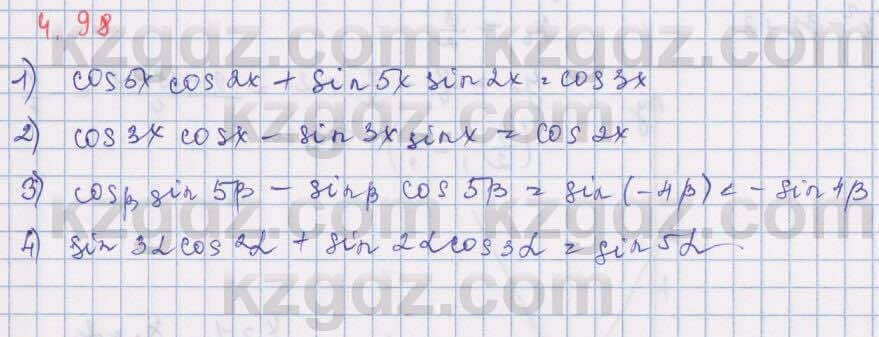 4.98
1) cos 5x cos 2x + sin 5x sin 2x = cos 3x
2) cos 3x cos x - sin 3x sin x = cos 2x
3) cos β sin 5β - sin β cos 5β = sin (-4β) = - sin 4β
4) sin 3α cos 2α + sin 2α cos 3α = sin 5α.
kzgdz.com kzgdz.com
kzgdz.com
kzgdz.com kzgdz.com
kzgdz.com